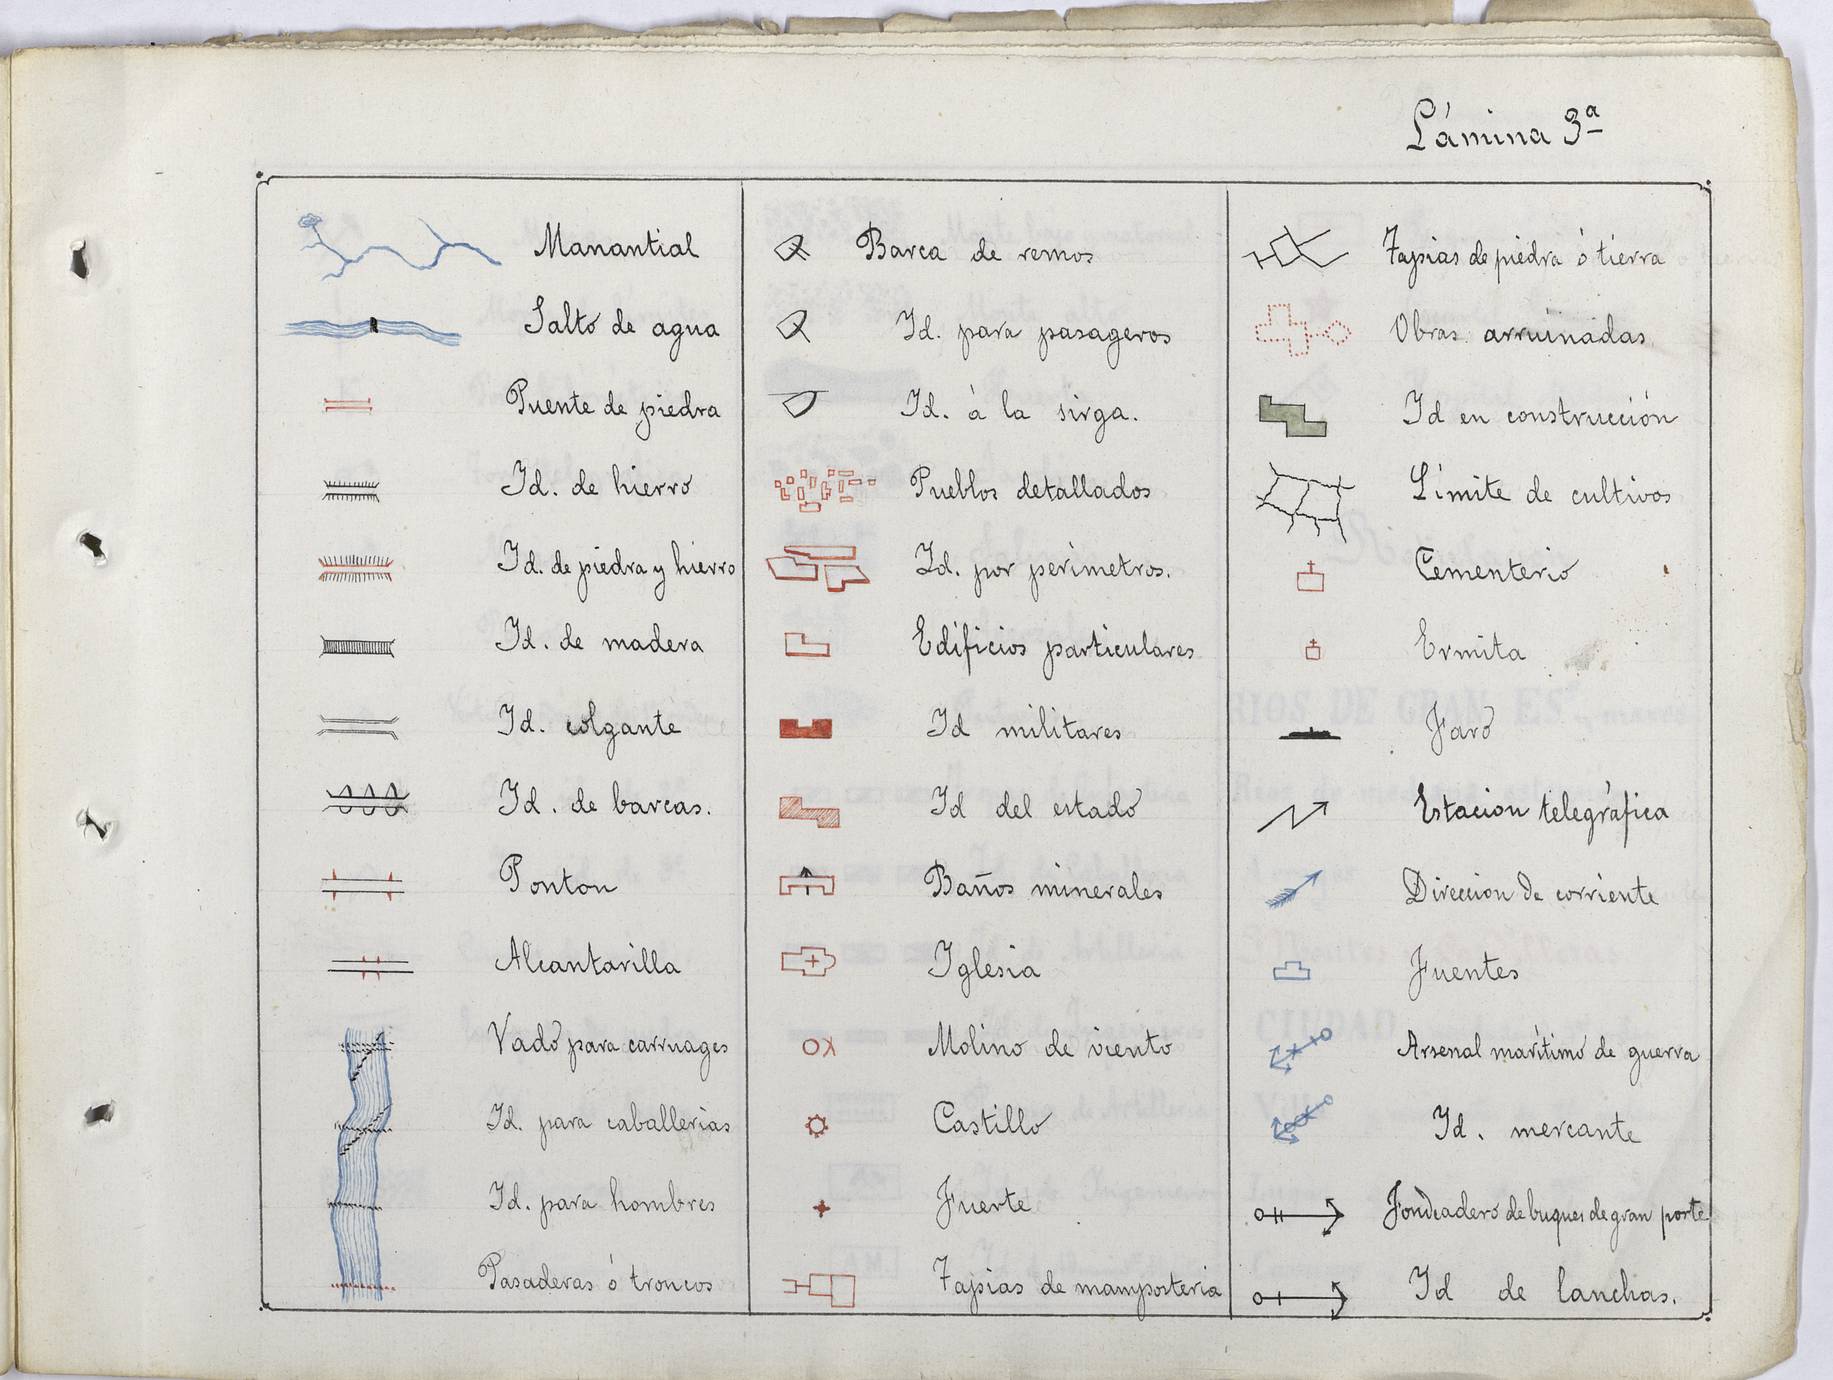 Lámina 3ª
Manantial
Salto de agua
Puente de piedra
Id. de hierro
Id. de piedra y hierro
Id. de madera
Id. colgante
Id. de barcas.
Ponton
Alcantarilla
Vado para carruages
Id. para caballerias
Id. para hombres
Pasaderas ó troncos
Barca de remos
Id. para pasageros
Id. á la sirga.
Pueblos detallados
Id. por perímetros.
Edificios particulares
Id militares
Id del estado
Baños minerales
Iglesia
Molino de viento
Castillo
Fuerte
Tapias de mamposteria
Tapias de piedra ó tierra
Obras arruinadas
Id en construcción
Límite de cultivos
Cementerio
Ermita
Faro
Estacion telegráfica
Direccion de corriente
Fuentes
Arsenal marítimo de guerra
Id. mercante
Fondeadero de buques de gran porte
Id de lanchas.